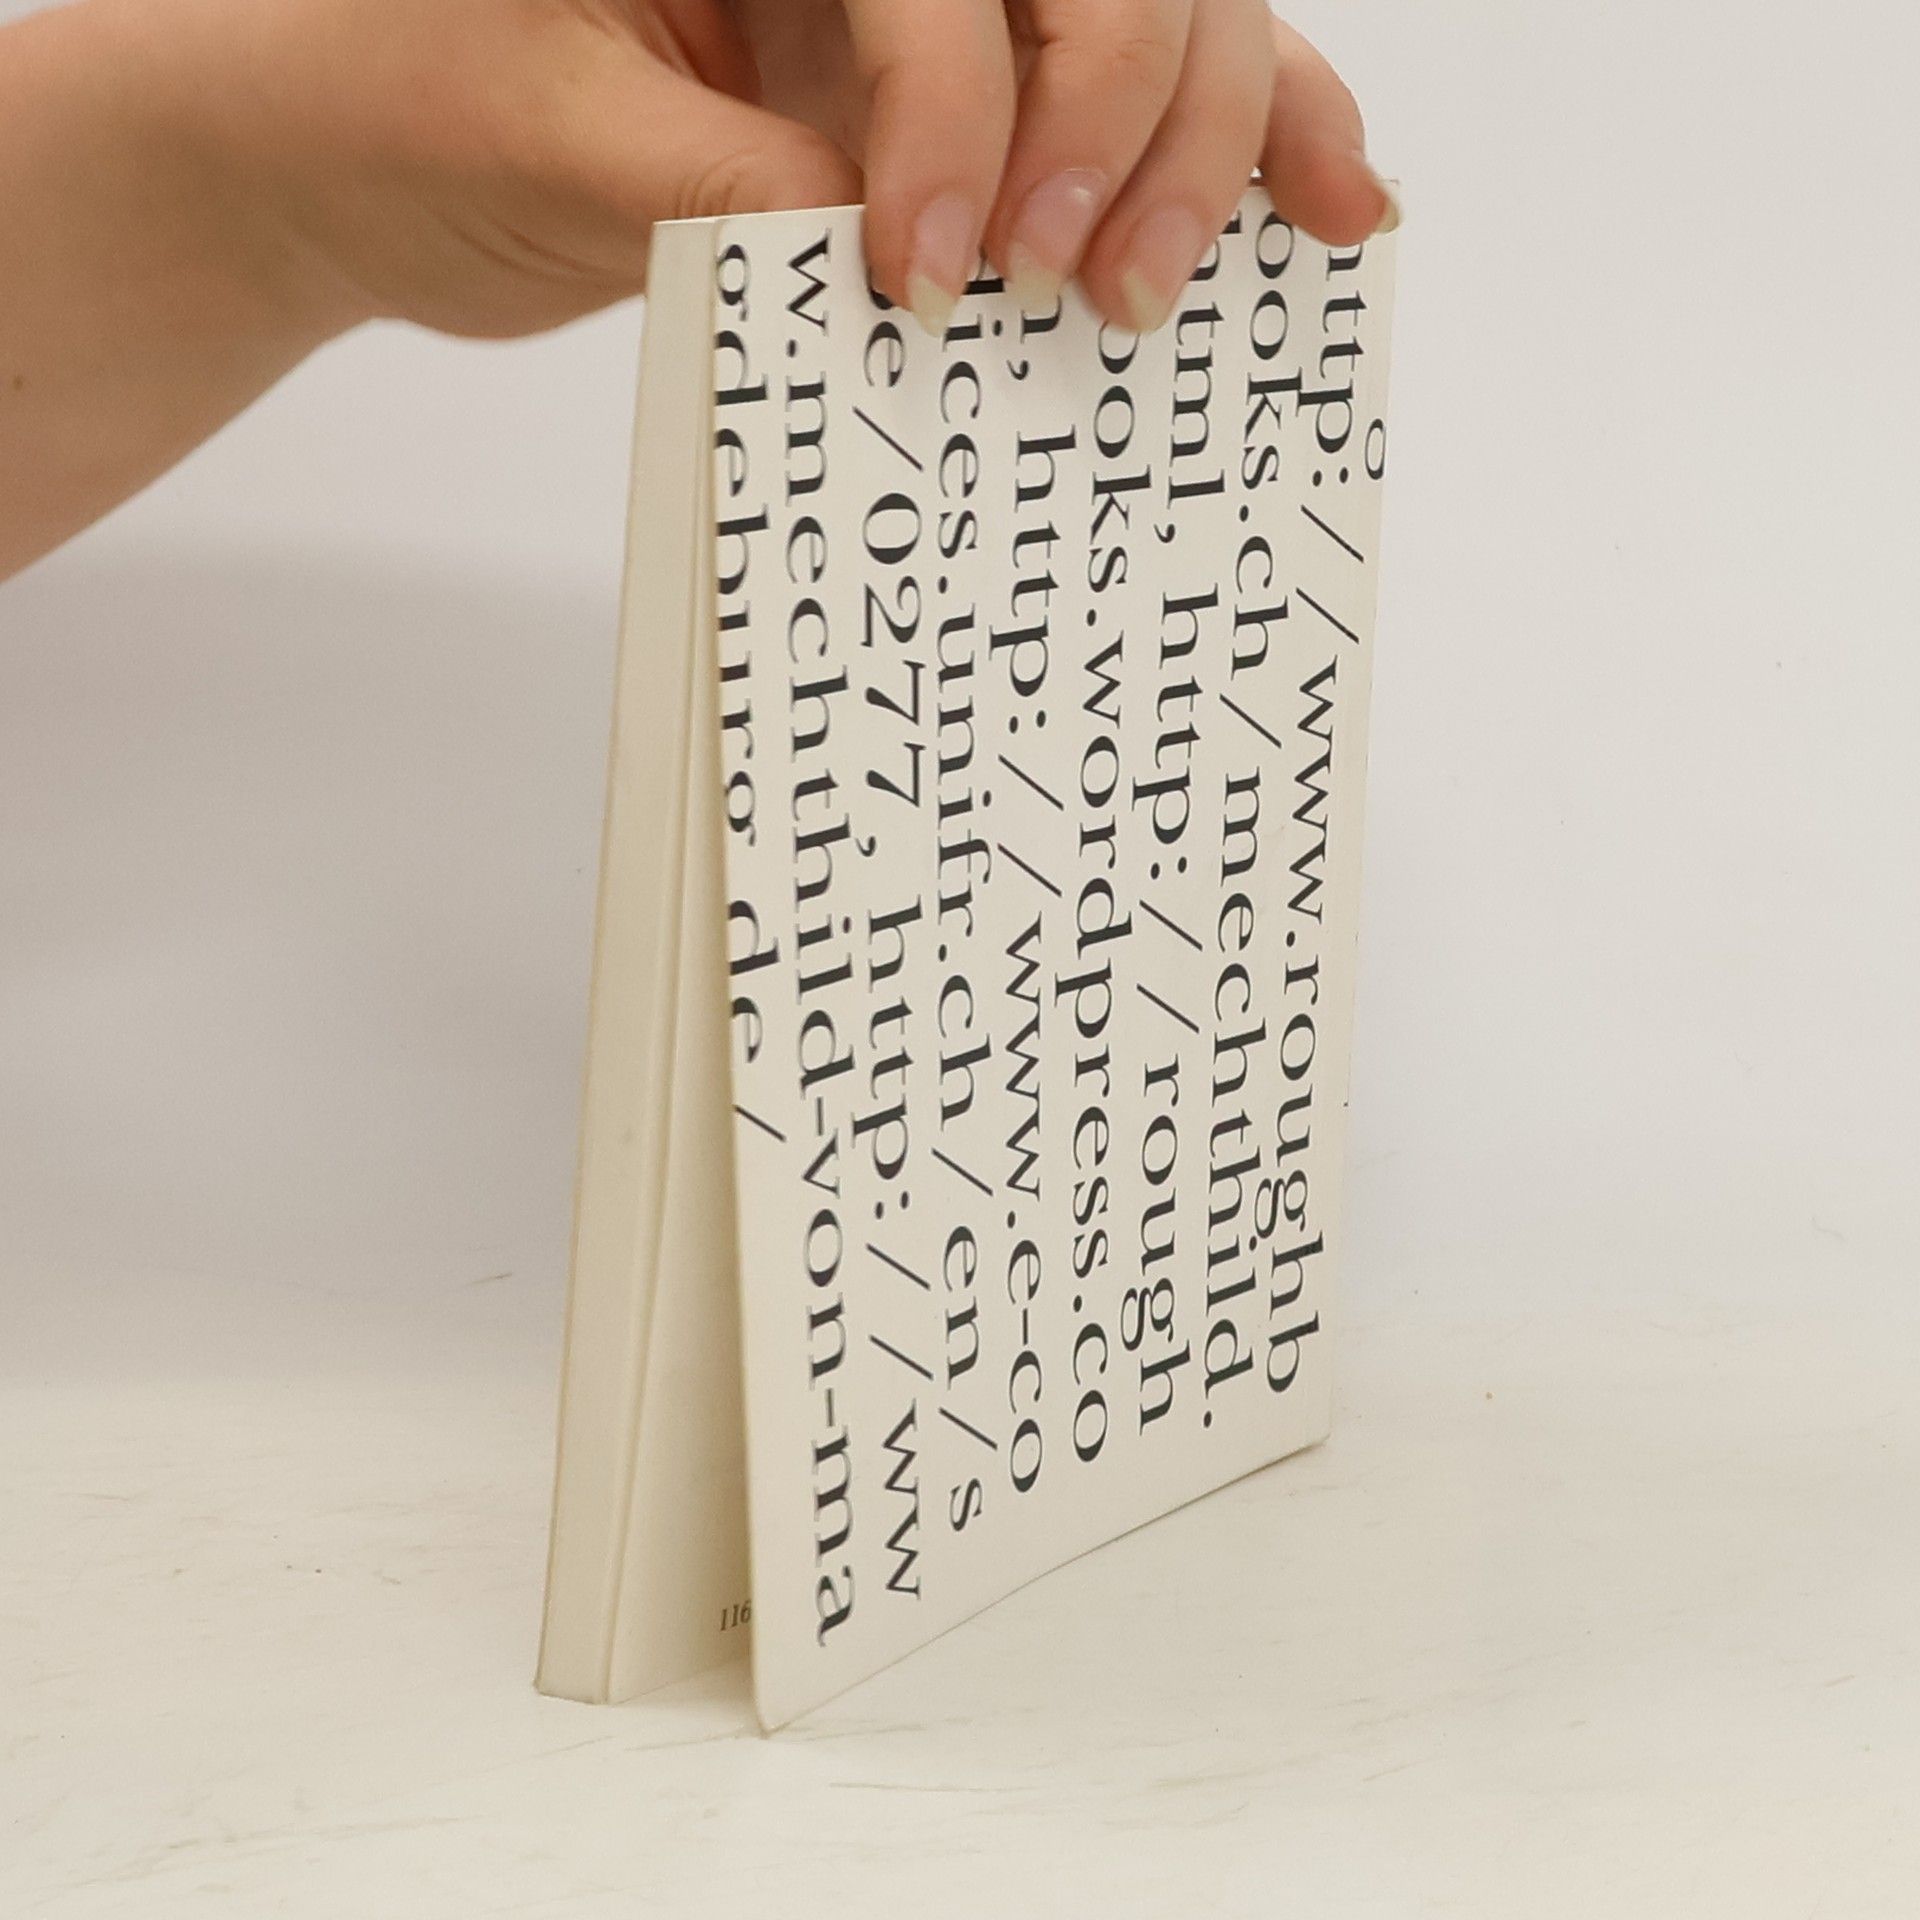 http://www.roughb
ooks.ch/mechthild.
html, http://rough
books.wordpress.co
m, http://www.e-co
dices.unifr.ch/en/s
be/0277, http://ww
w.mechthild-von-ma
gdeburg.de/
116